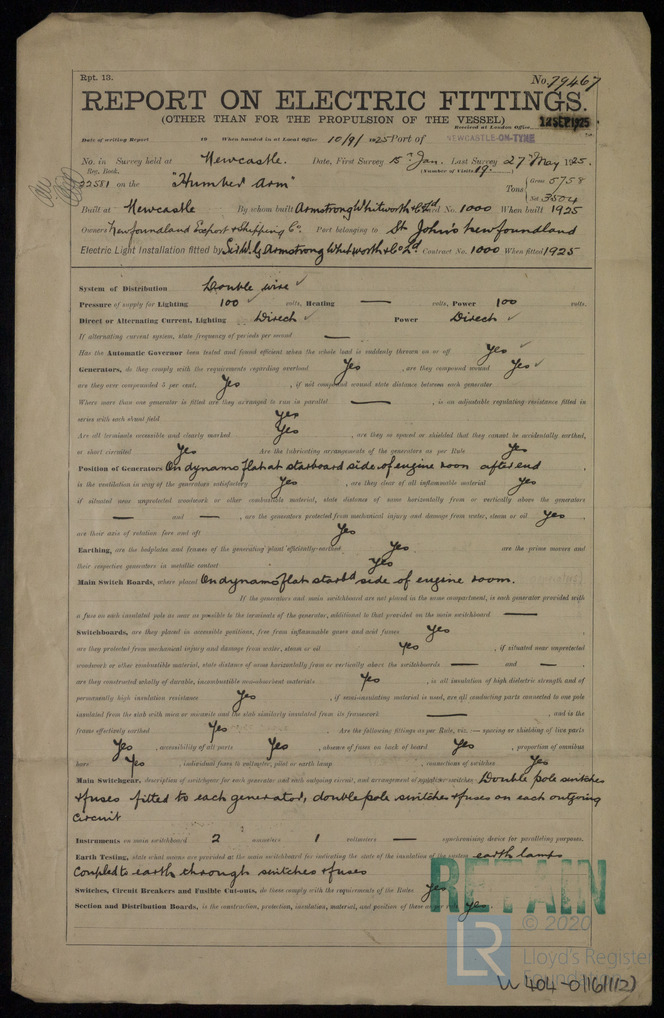 Rpt. 13.
No. 79467
REPORT ON ELECTRIC FITTINGS.
(OTHER THAN FOR THE PROPULSION OF THE VESSEL)
Received at London Office 12 SEP 1925
Date of writing Report 19 When handed in at Local Office 10/9/1925 Port of NEWCASTLE-ON-TYNE
No. in Survey held at Newcastle. Date, First Survey 15th Jan. Last Survey 27th May 1925.
Reg. Book. (Number of Visits 19.)
22581 on the "Humber Arm" Tons { Gross 5758
Net 3504
Built at Newcastle By whom built Armstrong Whitworth & Co Ld Yard No. 1000 When built 1925
Owners Newfoundland Export & Shipping Co. Port belonging to St John's Newfoundland
Electric Light Installation fitted by Sir W. G Armstrong Whitworth & Co Ld Contract No. 1000 When fitted 1925
System of Distribution Double wire
Pressure of supply for Lighting 100 volts, Heating — volts, Power 100 volts.
Direct or Alternating Current, Lighting Direct Power Direct
If alternating current system, state frequency of periods per second —
Has the Automatic Governor been tested and found efficient when the whole load is suddenly thrown on or off Yes
Generators, do they comply with the requirements regarding overload Yes , are they compound wound Yes
are they over compounded 5 per cent. Yes , if not compound wound state distance between each generator
Where more than one generator is fitted are they arranged to run in parallel — , is an adjustable regulating resistance fitted in
series with each shunt field Yes
Are all terminals accessible and clearly marked Yes , are they so spaced or shielded that they cannot be accidentally earthed,
or short circuited Yes Are the lubricating arrangements of the generators as per Rule Yes
Position of Generators On dynamo flat at starboard side of engine room after end
is the ventilation in way of the generators satisfactory Yes , are they clear of all inflammable material Yes
if situated near unprotected woodwork or other combustible material, state distance of same horizontally from or vertically above the generators
— and — , are the generators protected from mechanical injury and damage from water, steam or oil Yes ,
are their axis of rotation fore and aft Yes
Earthing, are the bedplates and frames of the generating plant efficiently earthed Yes are the prime movers and
their respective generators in metallic contact Yes
Main Switch Boards, where placed On dynamo flat starbd side of engine room.
If the generators and main switchboard are not placed in the same compartment, is each generator provided with
a fuse on each insulated pole as near as possible to the terminals of the generator, additional to that provided on the main switchboard —
Switchboards, are they placed in accessible positions, free from inflammable gases and acid fumes Yes
are they protected from mechanical injury and damage from water, steam or oil Yes , if situated near unprotected
woodwork or other combustible material, state distance of same horizontally from or vertically above the switchboards — and — ,
are they constructed wholly of durable, incombustible non-absorbent materials Yes , is all insulation of high dielectric strength and of
permanently high insulation resistance Yes , if semi-insulating material is used, are all conducting parts connected to one pole
insulated from the slab with mica or micanite and the slab similarly insulated from its framework — , and is the
frame effectively earthed Yes Are the following fittings as per Rule, viz. — spacing or shielding of live parts
Yes , accessibility of all parts Yes , absence of fuses on back of board Yes , proportion of omnibus
bars Yes , individual fuses to voltmeter, pilot or earth lamp , connections of switches Yes
Main Switchgear, description of switchgear for each generator and each outgoing circuit, and arrangement of equaliser switches Double pole switches
& fuses fitted to each generator, double pole switches & fuses on each outgoing
circuit
Instruments on main switchboard 2 ammeters 1 voltmeters — synchronising device for paralleling purposes.
Earth Testing, state what means are provided at the main switchboard for indicating the state of the insulation of the system earth lamps
coupled to earth through switches & fuses
Switches, Circuit Breakers and Fusible Cut-outs, do these comply with the requirements of the Rules Yes
Section and Distribution Boards, is the construction, protection, insulation, material, and position of these as per Yes
RETAIN
© 2020
LR
Lloyd's Register
Foundation
W404-0161(12)